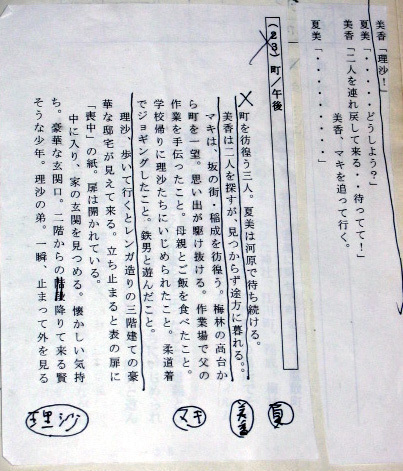 美香「理沙！」
夏美「・・・・・・どうしよう？」
美香「二人を連れ戻して来る・・待ってて！」
美香、マキを追って行く。
夏美「・・・・・・・・・・・」
(23)町／午後
町を彷徨う三人。夏美は河原で待ち続ける。
美香は二人を探すが、見つからず途方に暮れる。。
マキは、坂の街・稲成を彷徨う。梅林の高台か
ら町を一望。思い出が駆け抜ける。作業場で父の
作業を手伝ったこと。母親とご飯を食べたこと。
学校帰りに理沙たちにいじめられたこと。柔道着
でジョギングしたこと。鉄男と遊んだこと。
理沙、歩いて行くとレンガ造りの三階建ての豪
華な邸宅が見えて来る。立ち止まると表の扉に
「喪中」の紙。扉は開かれている。
中に入り、家の玄関を見つめる。懐かしい気持
ち。豪華な玄関口。二階からの階段降りて来る賢
そうな少年。理沙の弟。一瞬、止まって外を見る
夏
美香
マキ
理沙